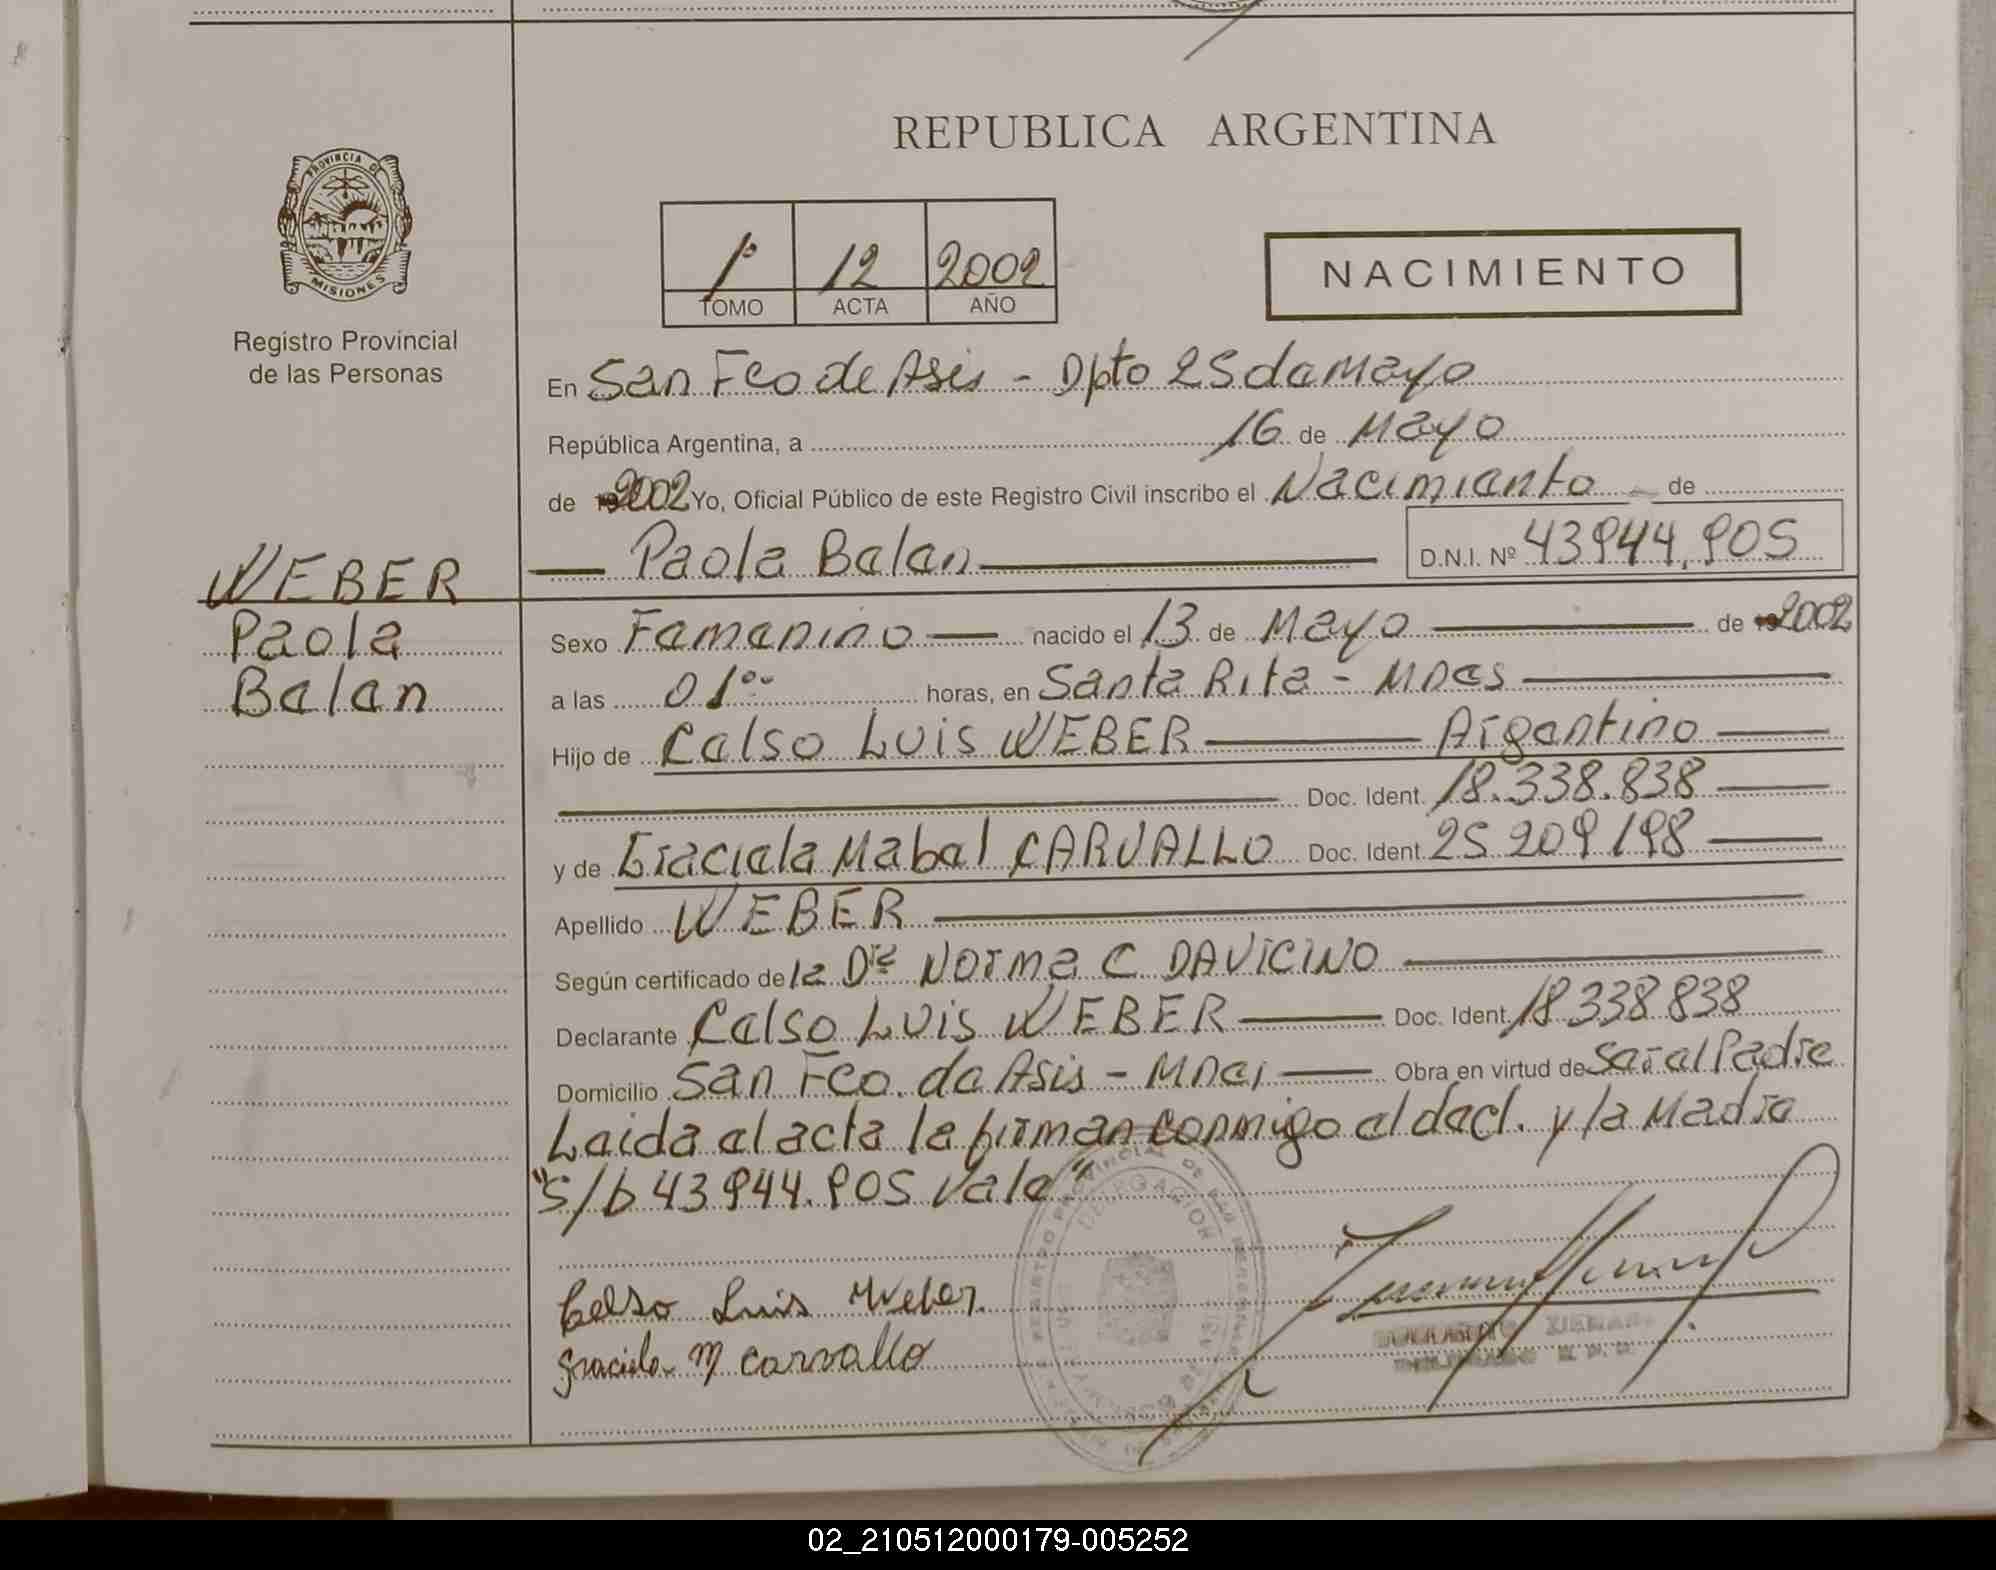 REPUBLICA ARGENTINA
PROVINCIA DE
MISIONES
Registro Provincial
de las Personas
1º 12 2002
TOMO ACTA AÑO
NACIMIENTO
En San Fco de Asis - Dpto 25 de Mayo
República Argentina, a 16 de Mayo
de 2002 Yo, Oficial Público de este Registro Civil inscribo el Nacimiento de
Paola Belen D.N.I. Nº 43944.905
WEBER
Paola
Belen
Sexo Femenino nacido el 13 de Mayo de 2002
a las 01 ºº horas, en Santa Rita - Mnes
Hijo de Celso Luis WEBER Argentino
Doc. Ident. 18.338.838
y de Graciela Mabel CARVALLO Doc. Ident. 25 209 198
Apellido WEBER
Según certificado de la Dra Norma C DAVICINO
Declarante Celso Luis WEBER Doc. Ident. 18 338 838
Domicilio San Fco. de Asis - Mnes Obra en virtud de Ser el Padre
Leida el acta la firman conmigo el decl. y la Madre
"s/b 43944.905 Vale"
Celso Luis Weber
Graciela M Carvallo
REGISTRO PROVINCIAL DE LAS PERSONAS
DELEGACION
02_210512000179-005252